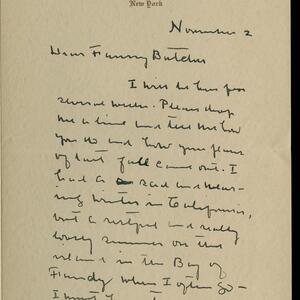 New York
November 2
Dear Fanny Butcher
I will be here for
several weeks. Please drop
me a line and tell me how
you do and how your plans
of last fall came out. I
had a sad and wear-
ing winter in California,
but a restful and really
lovely summer on this
island in the Bay of
Fundy where I often go
I must